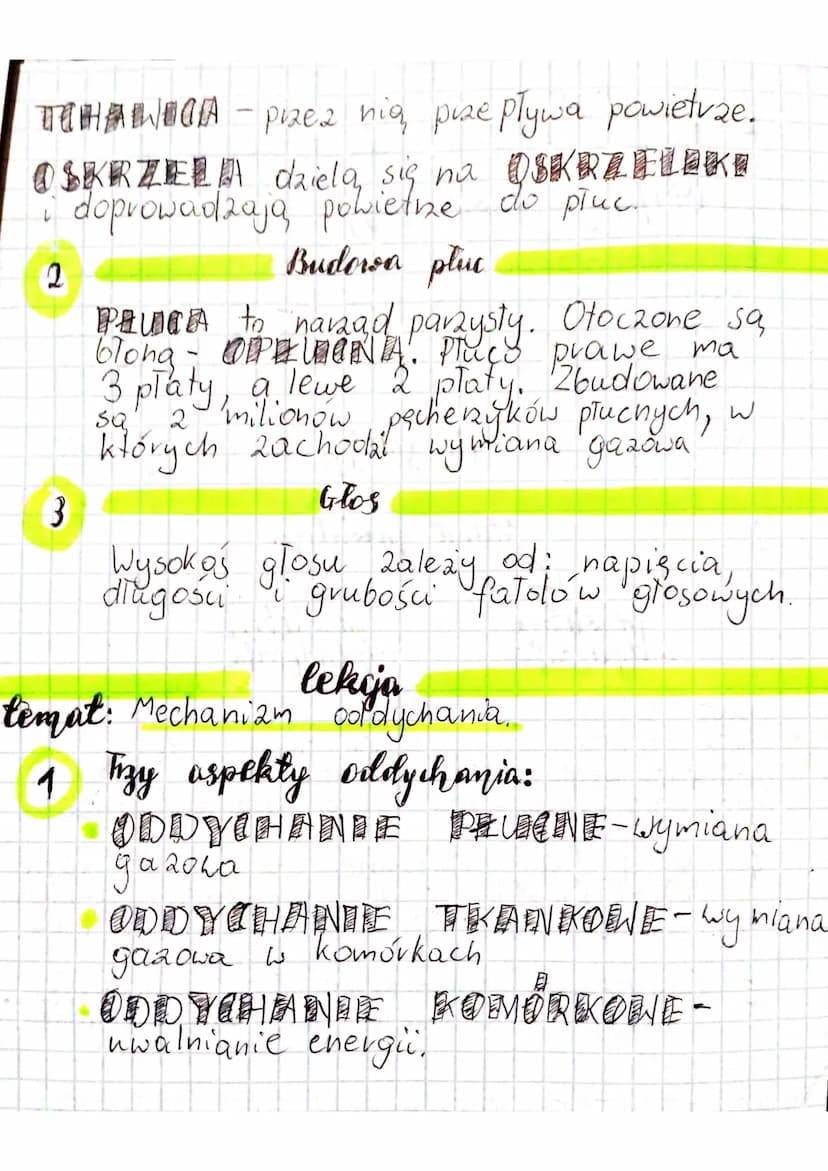 TCHAWICA - przez nią przepływa powietrze.
OSKRZELA dzielą się na OSKRZELIKI
i doprowadzają powietrze do płuc.
2 Budowa płuc
PŁUCA to narząd parzysty. Otoczone są
błoną - OPŁUCNĄ. Płuco prawe ma
3 płaty, a lewe 2 płaty. Zbudowane
są z milionów pęcherzyków płucnych, w
których zachodzi wymiana gazowa
3 Głos
Wysokoś głosu zależy od: napięcia,
długości i grubości fałdów głosowych.
lekcja
temat: Mechanizm oddychania.
1 Trzy aspekty oddychania:
• ODDYCHANIE PŁUCNE - wymiana
gazowa
• ODDYCHANIE TKANKOWE - wymiana
gazowa w komórkach
• ODDYCHANIE KOMÓRKOWE -
uwalnianie energii.